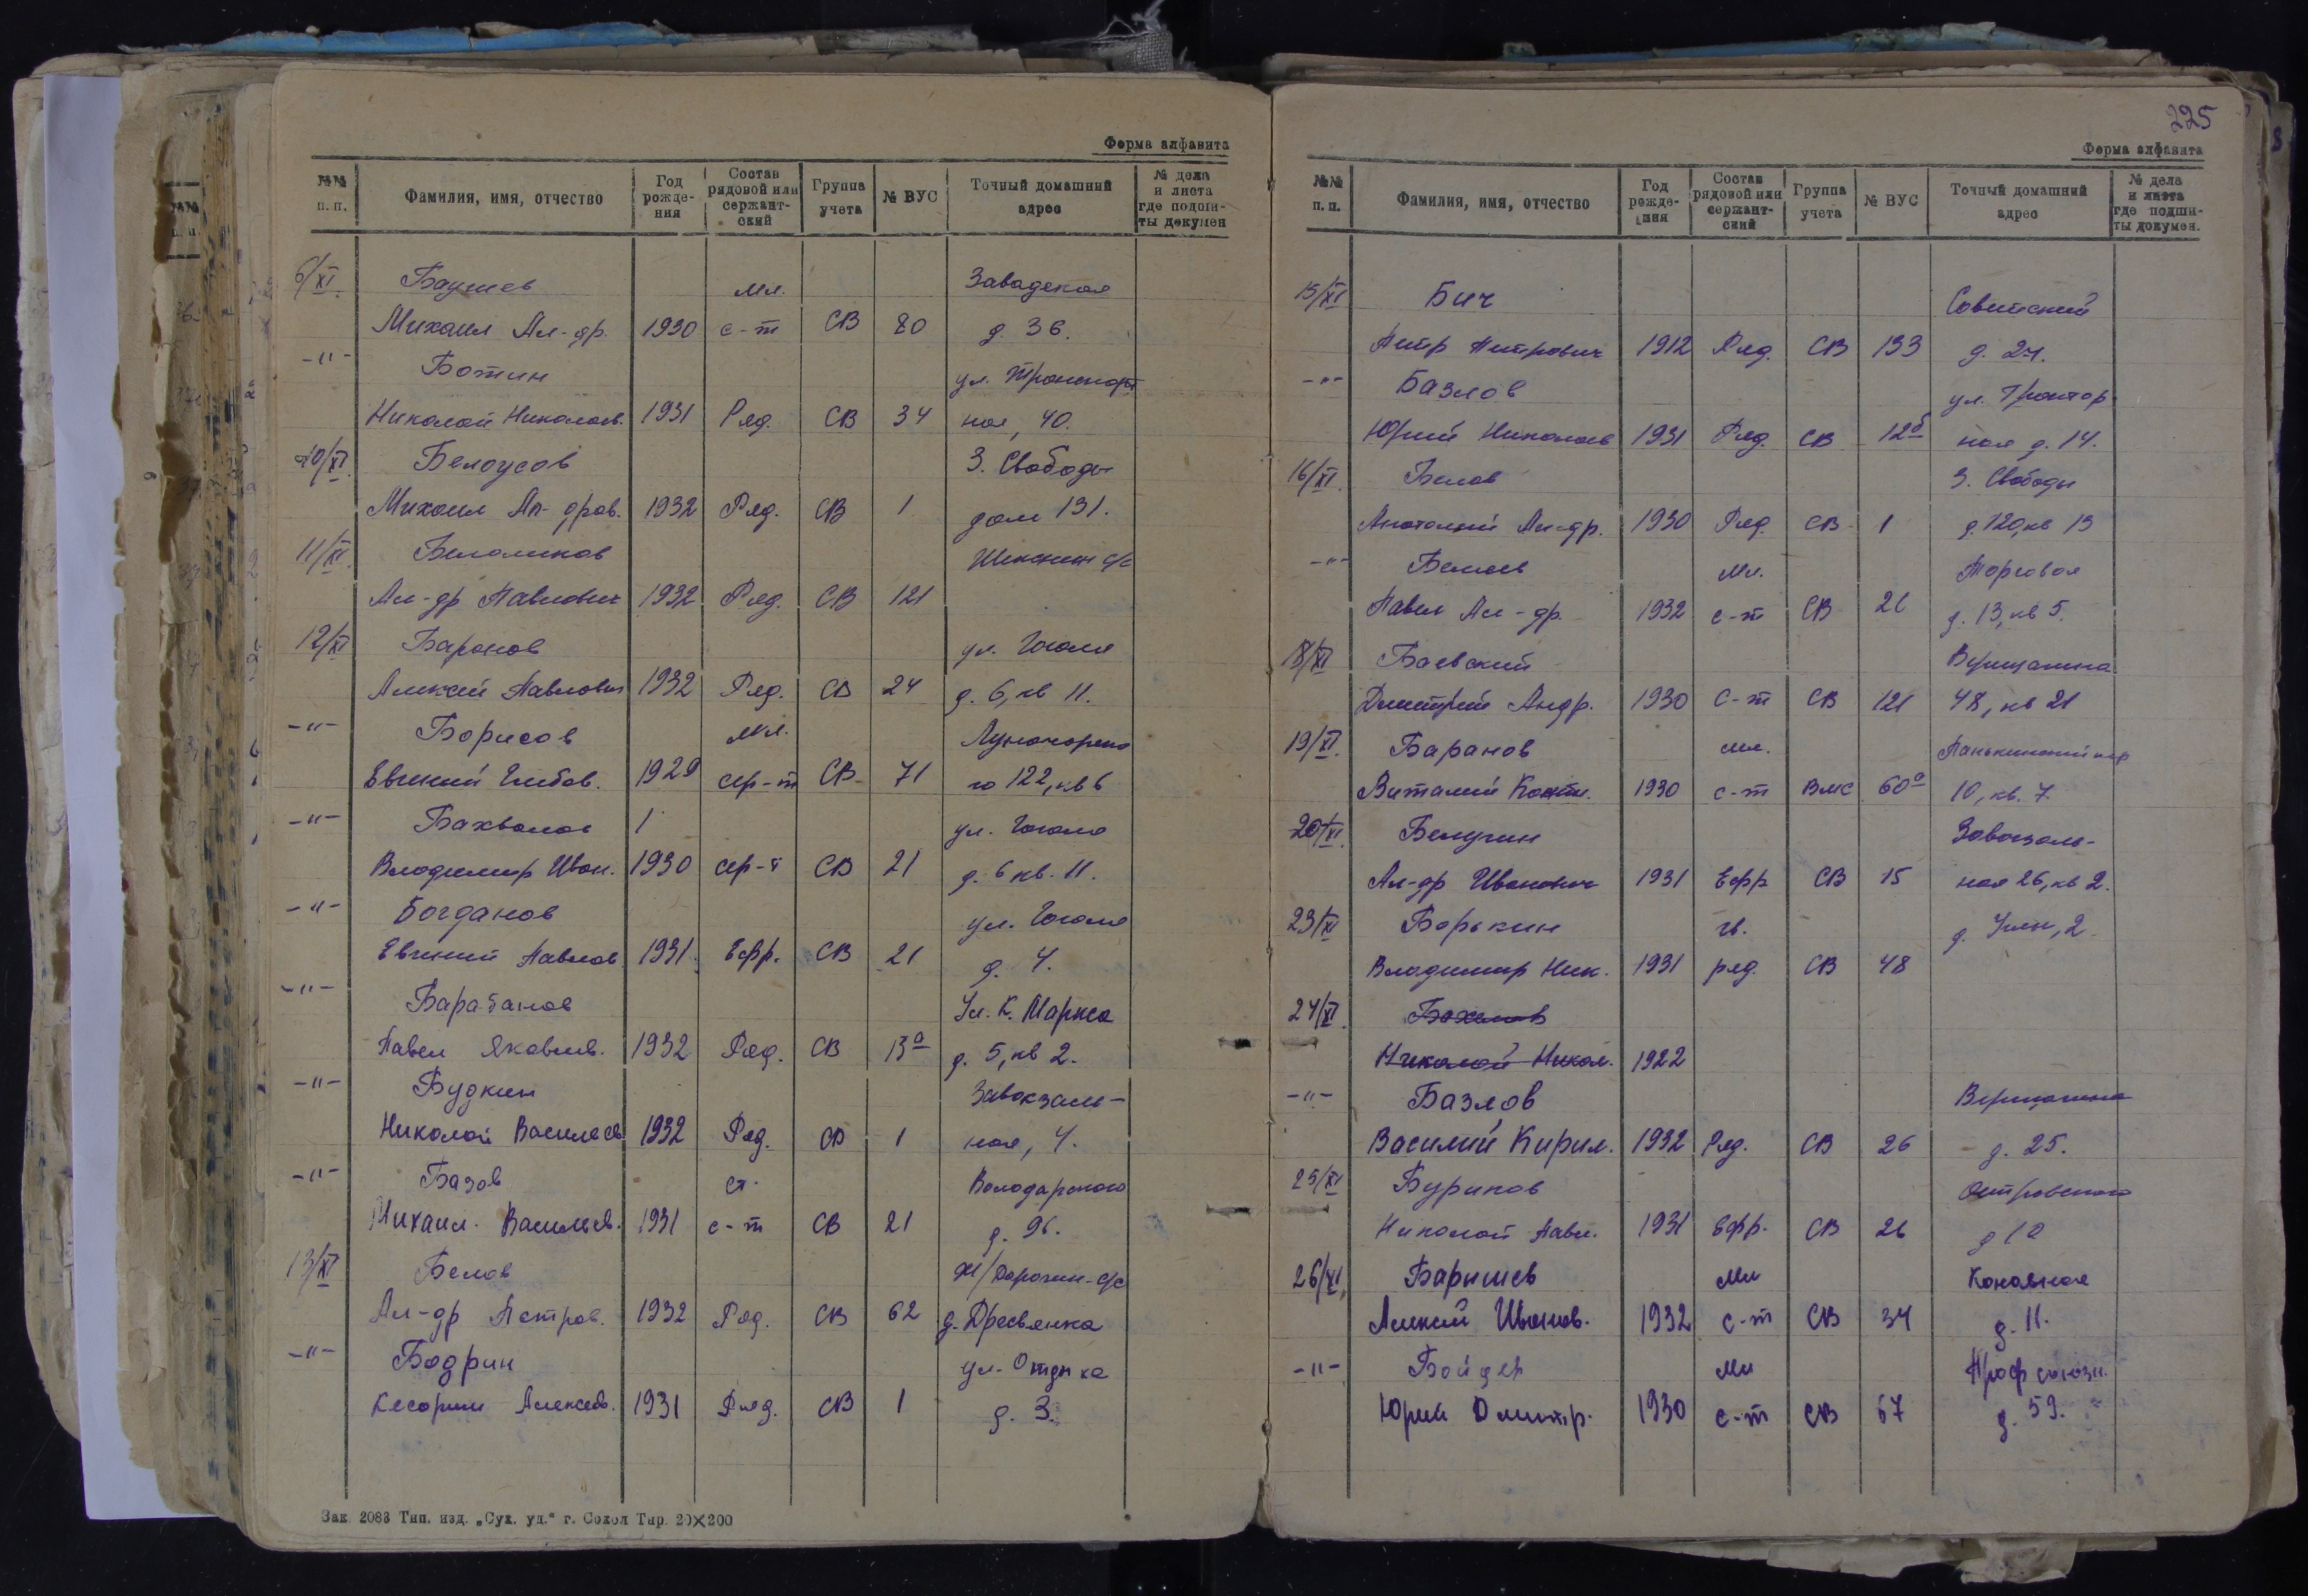 Форма алфавита
№№ п. п. Фамилия, имя, отчество Год рождения Состав рядовой или сержантский Группа учета № ВУС Точный домашний адрес № дела и листа где подшиты докумен
6/XI Мл.
Михаил Ал-др. 1930 с-т СВ 80 д. 36.
-"- Ботин ул. Транспорт
Николай Николаев. 1931 Ряд. СВ 34 ная, 40.
10/XI Белоусов З. Свободы
Михаил Ал-дров. 1932 Ряд. СВ 1 дом 131.
11/XI. с/с
Ал-др Павлович 1932 Ряд. СВ 121
12/XI Баранов ул. Гоголя
Алексей Павлович 1932 Ряд. СВ 24 д. 6, кв 11.
-"- Борисов Мл. Луначарско
Евгений Глебов. 1929 сер-т СВ 71 го 122, кв 6
-"- Бахвалов ул. Гоголя
Владимир Иван. 1930 сер-т СВ 21 д. 6 кв. 11.
-"- Богданов ул. Гоголя
Евгений Павлов 1931 Ефр. СВ 21 д. 4.
-"- Барабанов Ул. К. Маркса
Павел Яковлев. 1932 Ряд. СВ 13а д. 5, кв 2.
-"- Будкин Завокзаль-
Николай Васильев 1932 Ряд. СВ 1 ная, 4.
-"- Базов ст. Володарского
Михаил. Васильев. 1931 с-т СВ 21 д. 96.
13/XI Белов с/с
Ал-др Петров. 1932 Ряд. СВ 62 д. Дресвянка
-"- Бодрин ул. Отдыха
Алексеев. 1931 Ряд. СВ 1 д. 3.
Зак. 2083 Тип. изд. „Сух. уд.“ г. Сокол Тир. 20×200
225
Форма алфавита
№№ п. п. Фамилия, имя, отчество Год рождения Состав рядовой или сержантский Группа учета № ВУС Точный домашний адрес № дела и листа где подшиты докумен.
15/XI Бич Советский
Петр Петрович 1912 Ряд. СВ 133
-"- Базлов ул. Трактор
Юрий Николаев 1931 Ряд. СВ 12б ная д. 14.
16/XI. Белов З. Свободы
Анатолий Ал-др. 1930 Ряд. СВ 1 д. 120, кв 13
-"- Беляев Мл. Торговая
Павел Ал-др. 1932 с-т СВ 21 д. 13, кв 5.
18/XI Баевский Верещагина
Дмитрий Андр. 1930 С-т СВ 121 48, кв 21
19/XI. Баранов мл. Панькинский пер
Виталий Конст. 1930 с-т ВМС 60а 10, кв. 7.
20/XI. Белугин Завокзаль-
Ал-др Иванович 1931 Ефр СВ 15 ная 26, кв 2.
23/XI Борькин гв.
Владимир Ник. 1931 ряд. СВ 48
24/XI.
Николай Никол. 1922
-"- Базлов Верещагина
Василий Кирил. 1932 Ряд. СВ 26 д. 25.
25/XI Буриков Островского
Николай Павл. 1931 Ефр. СВ 26
26/XI, Барышев Мл Конавная
Алексей Иванов. 1932 с-т СВ 34 д. 11.
-"- Бойцер Мл Профсоюзн.
Юрий Дмитр. 1930 с-т СВ 67 д. 59.